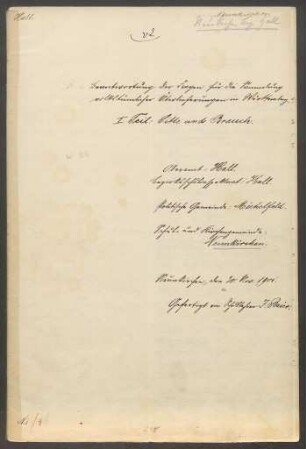 Hall.
Neunkirchen
Neunkirchen, Hall
v2
Beantwortung der Fragen für die Sammlung
volkstümlicher Überlieferungen in Württemberg.
I Teil. Sitte und Brauch.
Oberamt: Hall.
Bezirksschulinspektorat: Hall
Politische Gemeinde: Michelfeld.
Schul- und Kirchengemeinde:
Neunkirchen.
Neunkirchen, den 30. Nov. 1900.
Gefertigt von Schullehrer J.